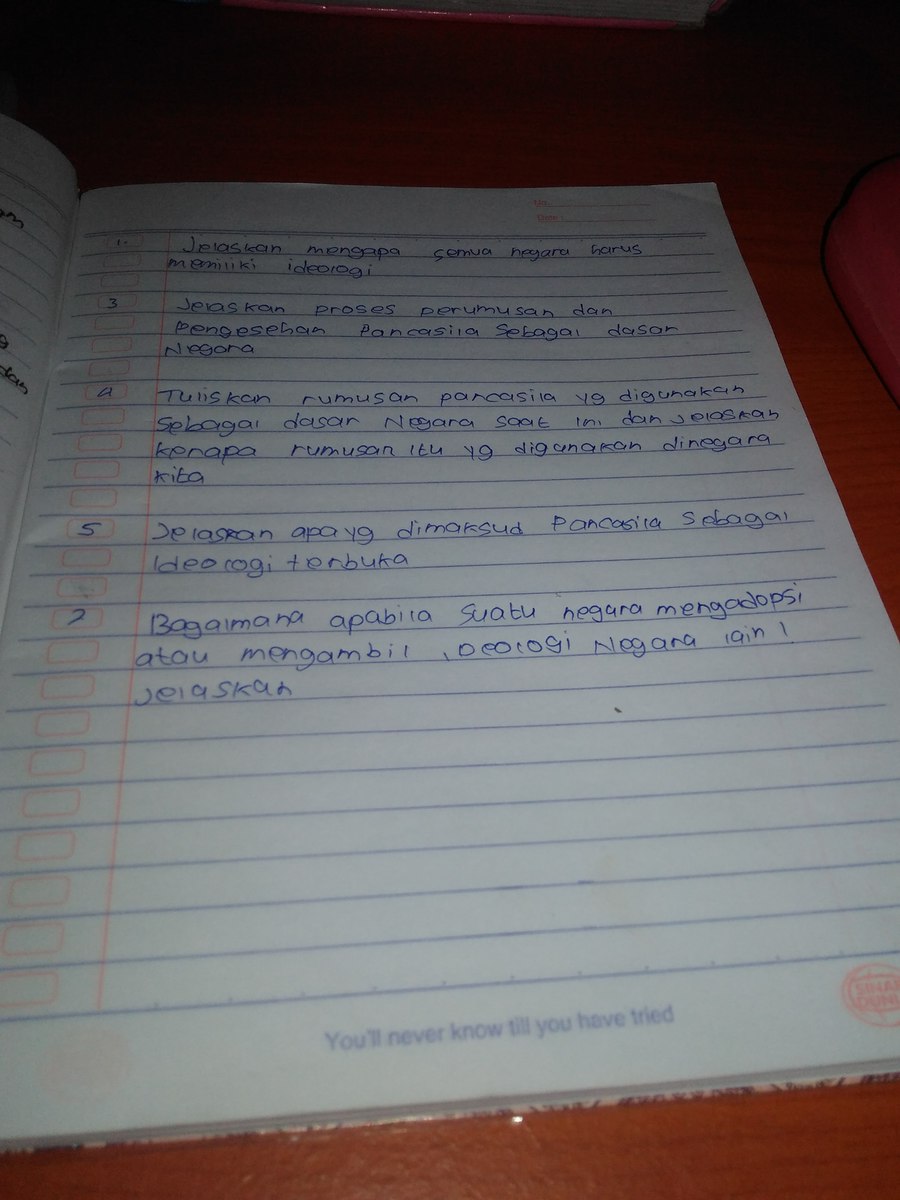 No.
Date :
1. Jelaskan mengapa semua negara harus
memiliki ideologi
3 Jelaskan proses perumusan dan
Pengesehan Pancasila Sebagai dasar
Negara
4 Tuliskan rumusan pancasila yg digunakan
Sebagai dasar Negara saat ini dan Jelaskan
kenapa rumusan itu yg digunakan dinegara
kita
5 Jelaskan apa yg dimaksud Pancasila Sebagai
Ideologi terbuka
2 Bagaimana apabila Suatu negara mengadopsi
atau mengambil ideologi Negara lain !
Jelaskan
You'll never know till you have tried